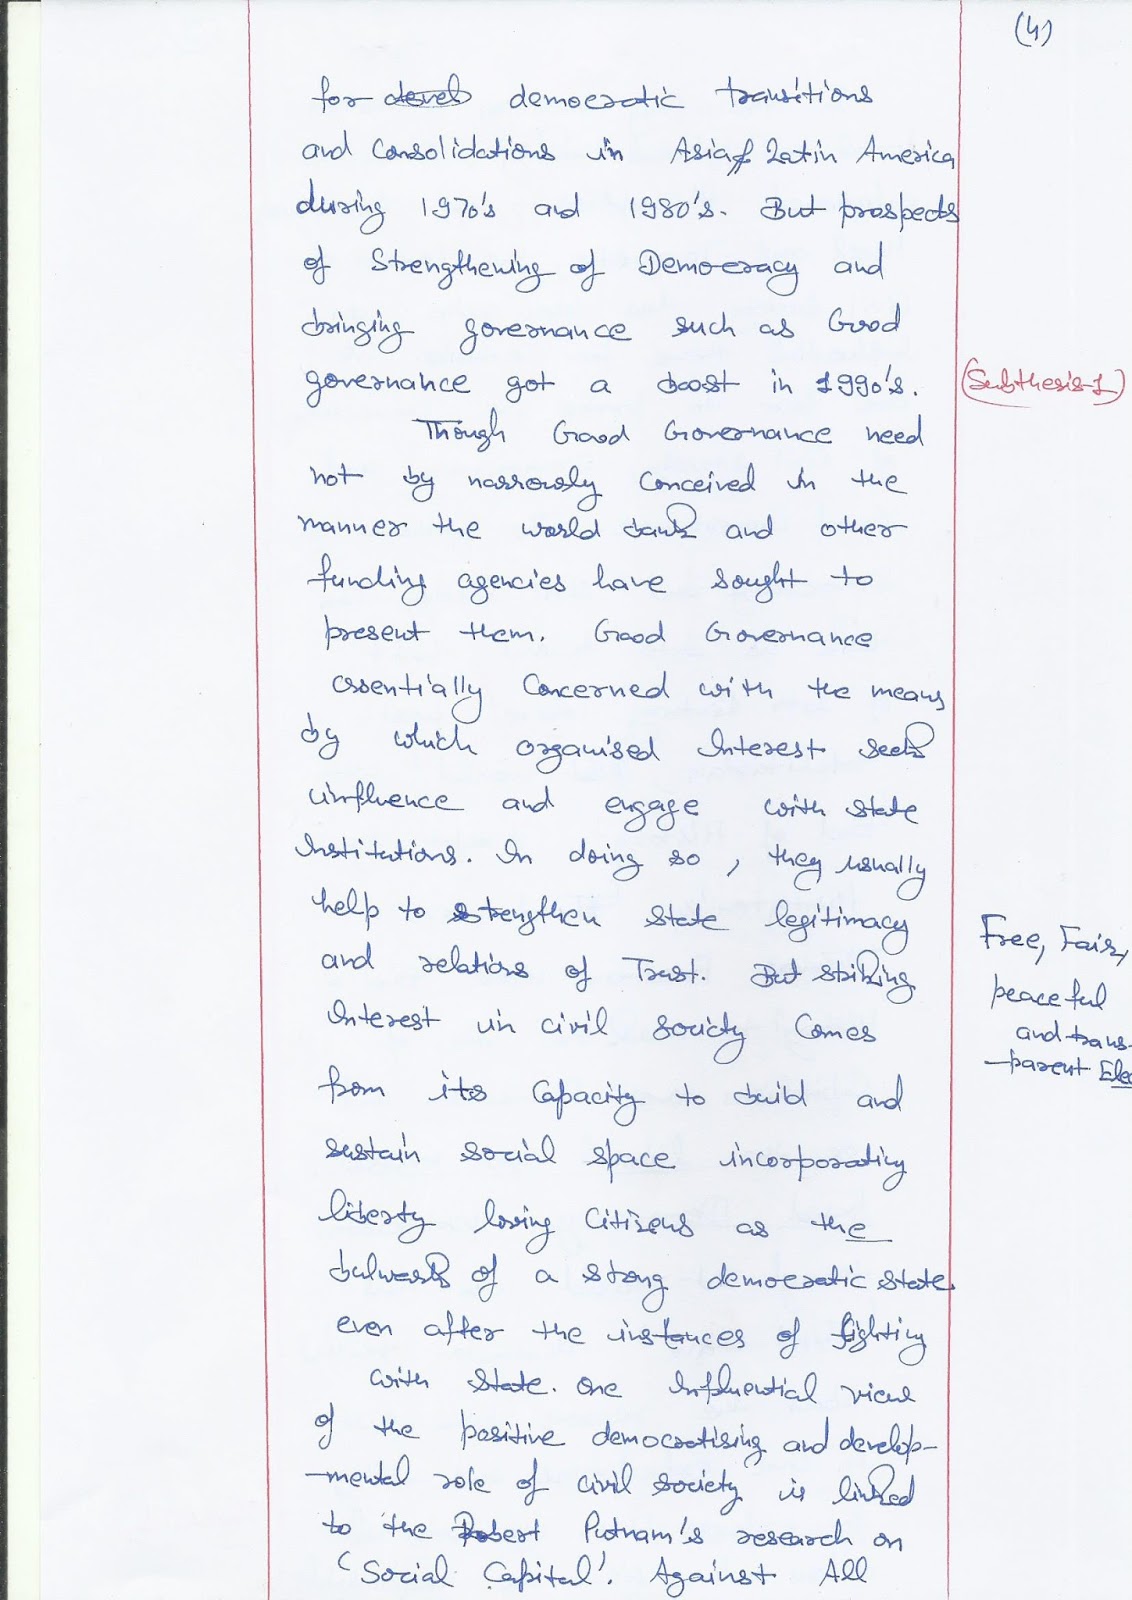 (4)
for devel democratic transitions
and Consolidations in Asia & Latin America
during 1970's and 1980's. But prospects
of Strengthening of Democracy and
bringing governance such as Good
governance got a boost in 1990's.
(Subthesis-1)
Though Good Governance need
not by narrowly conceived in the
manner the world bank and other
funding agencies have sought to
present them. Good Governance
essentially Concerned with the means
by which organised Interest seek
influence and engage with state
Institutions. In doing so, they usually
help to strengthen state legitimacy
and relations of Trust. But striking
Interest in civil society Comes
from its Capacity to build and
sustain social space incorporating
liberty loving Citizens as the
bulwark of a strong democratic state
even after the instances of fighting
with state. One Influential view
of the positive democratising and develop-
-mental role of civil society is linked
to the Robert Putnam's research on
'Social Capital'. Against All
Free, Fair,
peaceful
and trans-
-parent Elec